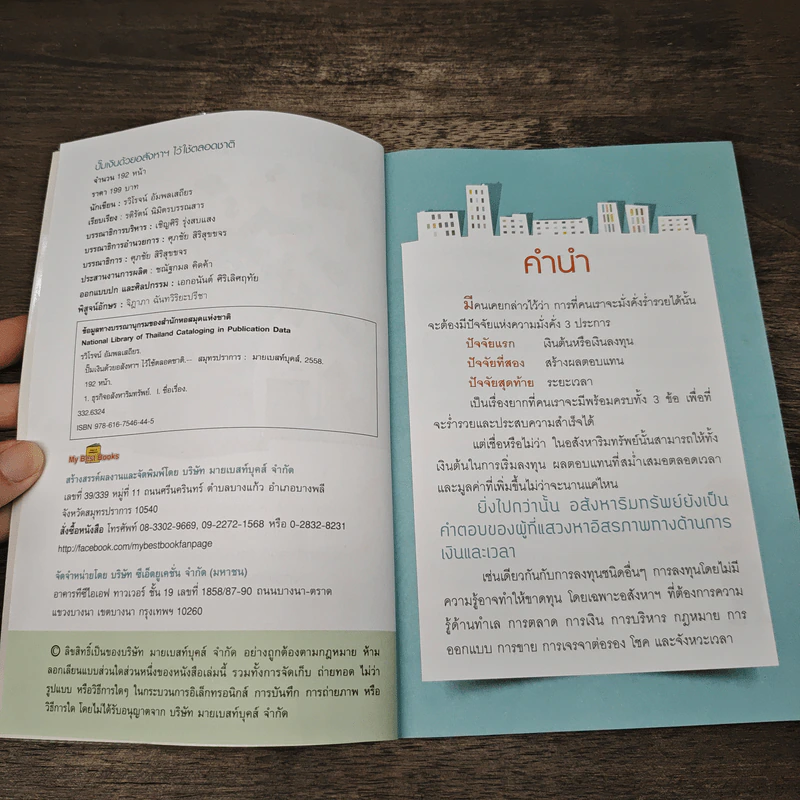 ปั๊มเงินด้วยอสังหาฯ ไว้ใช้ตลอดชาติ
จำนวน 192 หน้า
ราคา 199 บาท
นักเขียน : รวิโรจน์ อัมพลเสถียร
เรียบเรียง : รติรัตน์ นิมิตรบรรณสาร
บรรณาธิการบริหาร : เชิญศิริ รุ่งสบแสง
บรรณาธิการอำนวยการ : ศุภชัย สิริสุขขจร
บรรณาธิการ : ศุภชัย สิริสุขขจร
ประสานงานการผลิต : ชณัฐกมล คิดค้า
ออกแบบปก และศิลปกรรม : เอกอนันต์ ศิริเลิศฤทัย
พิสูจน์อักษร : จิฎาภา ฉันทวิริยะปรีชา
ข้อมูลทางบรรณานุกรมของสำนักหอสมุดแห่งชาติ
National Library of Thailand Cataloging in Publication Data
รวิโรจน์ อัมพลเสถียร.
ปั๊มเงินด้วยอสังหาฯ ไว้ใช้ตลอดชาติ.-- สมุทรปราการ : มายเบสท์บุคส์, 2558.
192 หน้า.
1. ธุรกิจอสังหาริมทรัพย์. I. ชื่อเรื่อง.
332.6324
ISBN 978-616-7546-44-5
My BEST Books
สร้างสรรค์ผลงานและจัดพิมพ์โดย บริษัท มายเบสท์บุคส์ จำกัด
เลขที่ 39/339 หมู่ที่ 11 ถนนศรีนครินทร์ ตำบลบางแก้ว อำเภอบางพลี
จังหวัดสมุทรปราการ 10540
สั่งซื้อหนังสือ โทรศัพท์ 08-3302-9669, 09-2272-1568 หรือ 0-2832-8231
http://facebook.com/mybestbookfanpage
จัดจำหน่ายโดย บริษัท ซีเอ็ดยูเคชั่น จำกัด (มหาชน)
อาคารทีซีไอเอฟ ทาวเวอร์ ชั้น 19 เลขที่ 1858/87-90 ถนนบางนา-ตราด
แขวงบางนา เขตบางนา กรุงเทพฯ 10260
© ลิขสิทธิ์เป็นของบริษัท มายเบสท์บุคส์ จำกัด อย่างถูกต้องตามกฎหมาย ห้าม
ลอกเลียนแบบส่วนใดส่วนหนึ่งของหนังสือเล่มนี้ รวมทั้งการจัดเก็บ ถ่ายทอด ไม่ว่า
รูปแบบ หรือวิธีการใดๆ ในกระบวนการอิเล็กทรอนิกส์ การบันทึก การถ่ายภาพ หรือ
วิธีการใด โดยไม่ได้รับอนุญาตจาก บริษัท มายเบสท์บุคส์ จำกัด
คำนำ
มีคนเคยกล่าวไว้ว่า การที่คนเราจะมั่งคั่งร่ำรวยได้นั้น
จะต้องมีปัจจัยแห่งความมั่งคั่ง 3 ประการ
ปัจจัยแรก เงินต้นหรือเงินลงทุน
ปัจจัยที่สอง สร้างผลตอบแทน
ปัจจัยสุดท้าย ระยะเวลา
เป็นเรื่องยากที่คนเราจะมีพร้อมครบทั้ง 3 ข้อ เพื่อที่
จะร่ำรวยและประสบความสำเร็จได้
แต่เชื่อหรือไม่ว่า ในอสังหาริมทรัพย์นั้นสามารถให้ทั้ง
เงินต้นในการเริ่มลงทุน ผลตอบแทนที่สม่ำเสมอตลอดเวลา
และมูลค่าที่เพิ่มขึ้นไม่ว่าจะนานแค่ไหน
ยิ่งไปกว่านั้น อสังหาริมทรัพย์ยังเป็น
คำตอบของผู้ที่แสวงหาอิสรภาพทางด้านการ
เงินและเวลา
เช่นเดียวกันกับการลงทุนชนิดอื่นๆ การลงทุนโดยไม่มี
ความรู้อาจทำให้ขาดทุน โดยเฉพาะอสังหาฯ ที่ต้องการความ
รู้ด้านทำเล การตลาด การเงิน การบริหาร กฎหมาย การ
ออกแบบ การขาย การเจรจาต่อรอง โชค และจังหวะเวลา